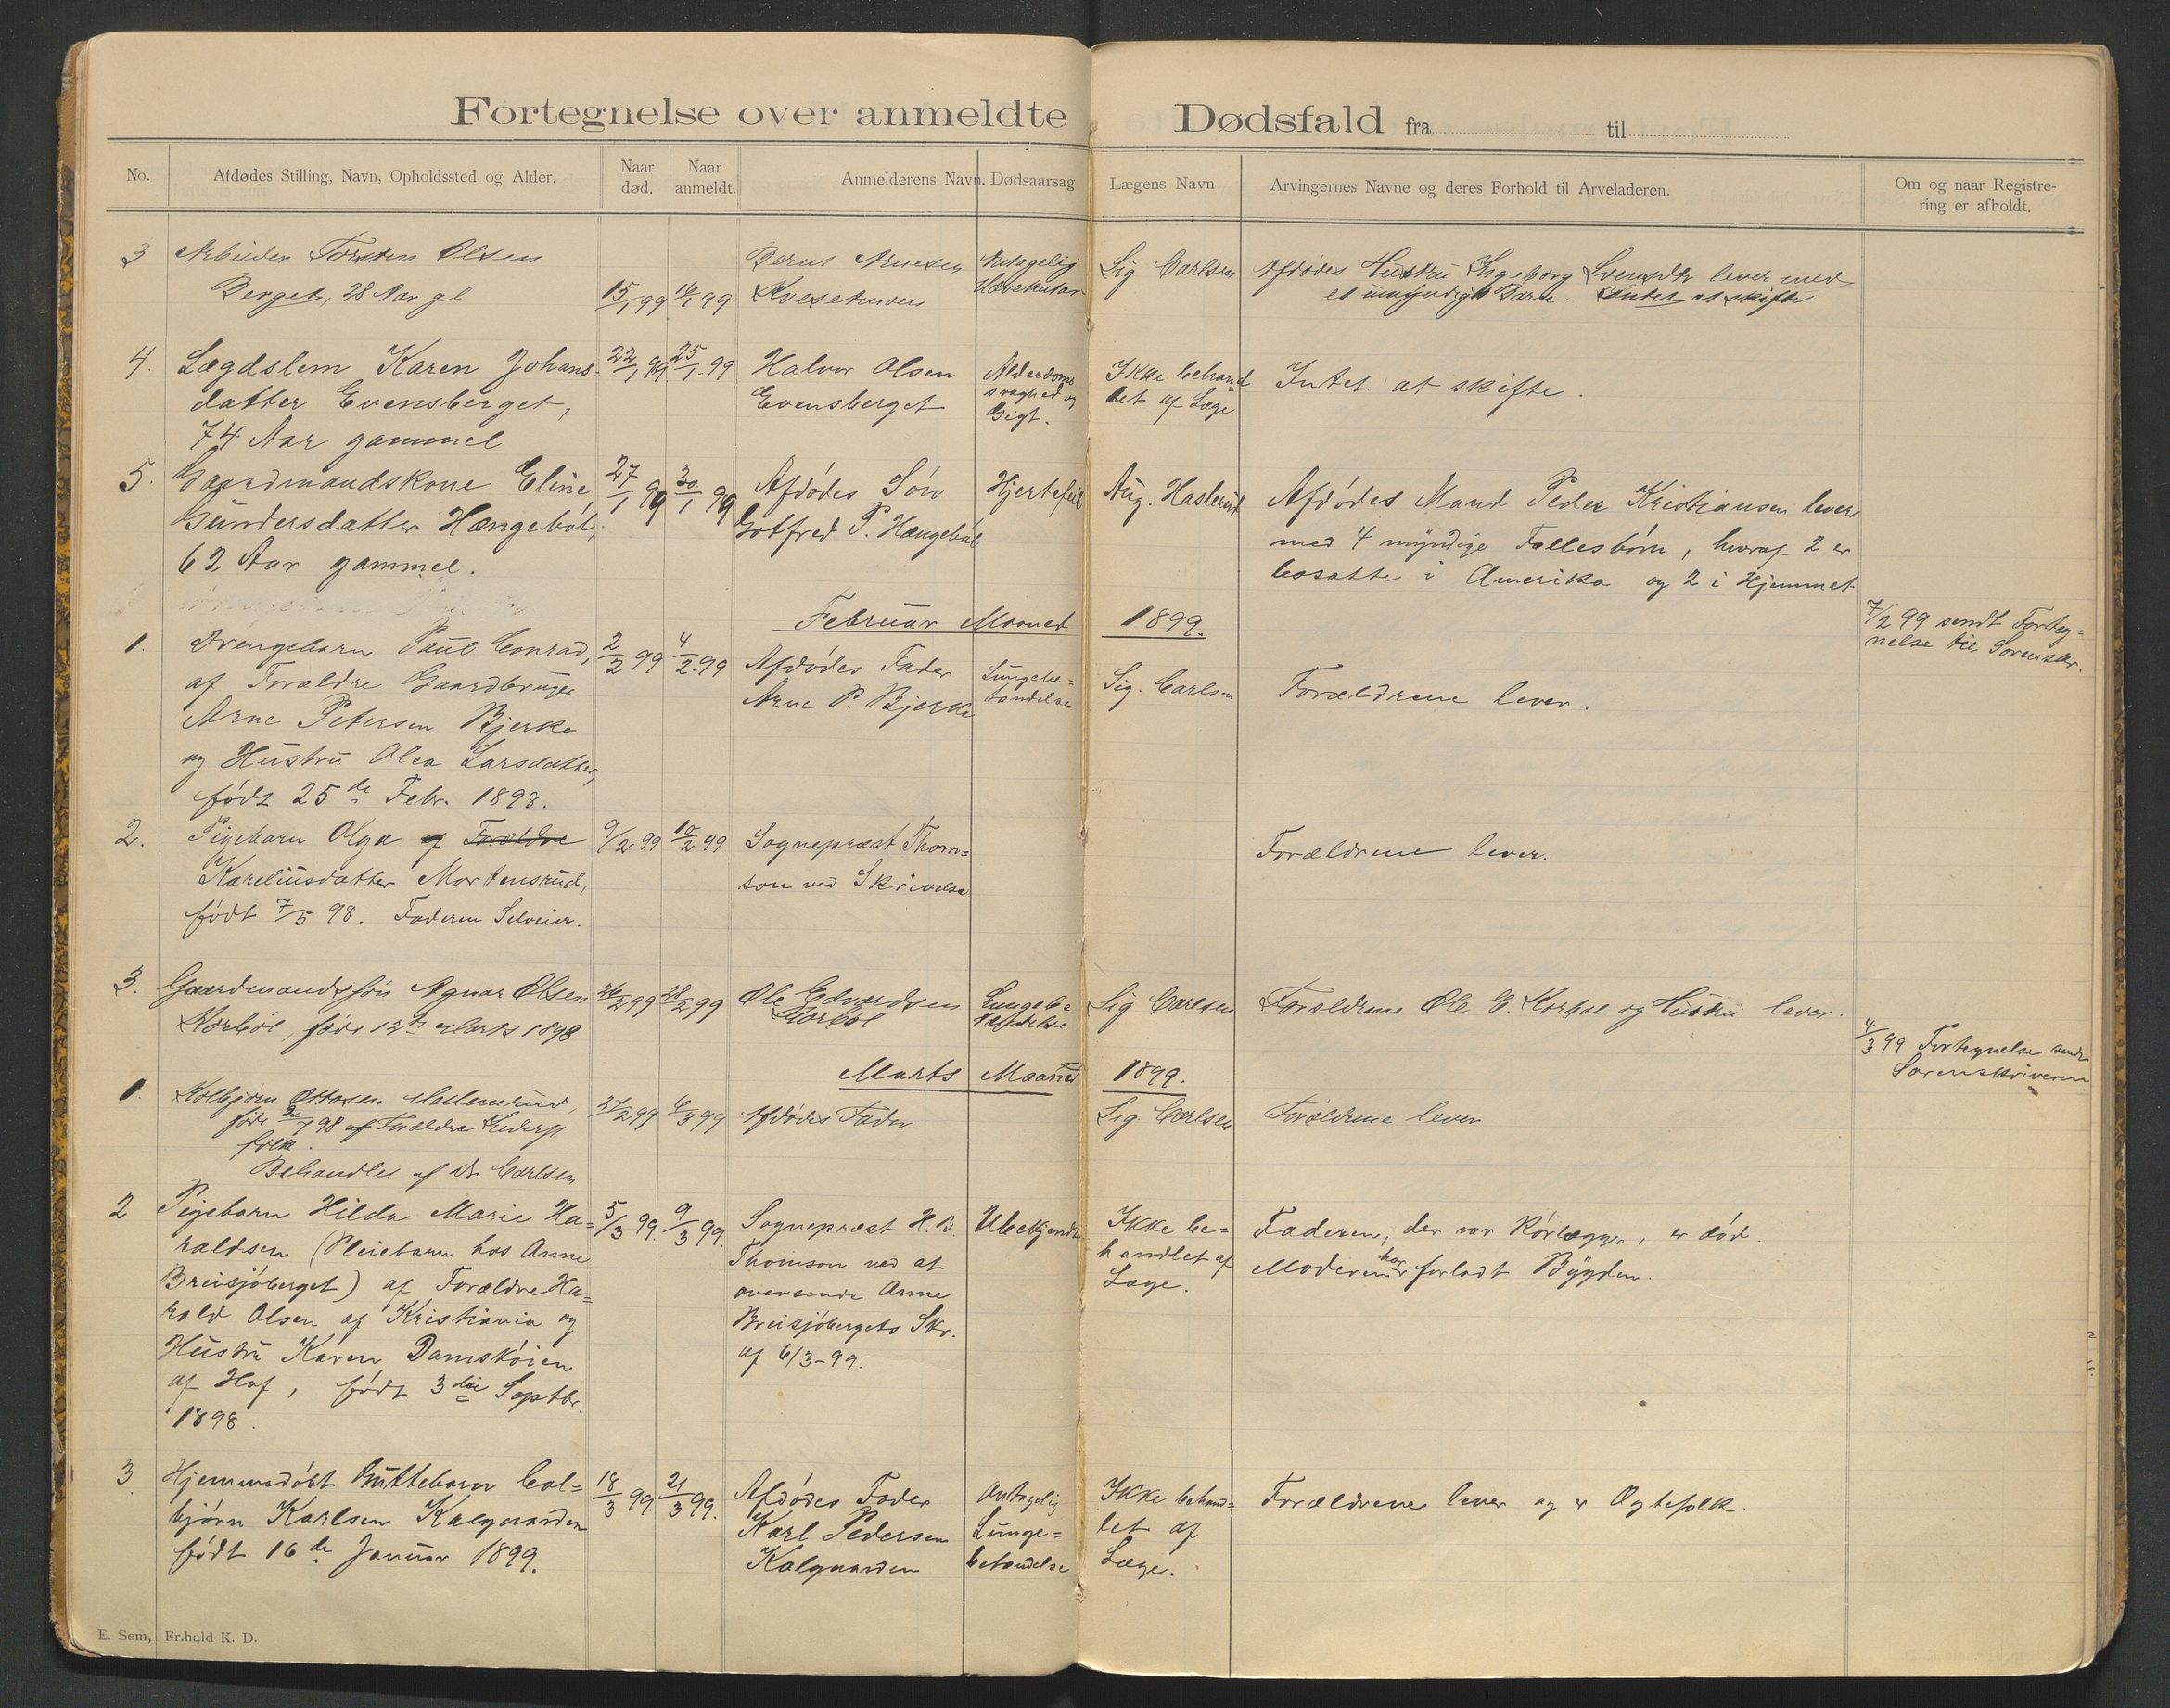 Fortegnelse over anmeldte Dødsfald fra til
No.
Afdødes Stilling, Navn, Opholdssted og Alder.
Naar død.
Naar anmeldt.
Anmelderens Navn.
Dødsaarsag
Lægens Navn
Arvingernes Navne og deres Forhold til Arveladeren.
Om og naar Registre-
ring er afholdt.
3
Arbeider Torsten Olsen
Berget, 28 Aar gl
15/1 99
16/1 99
Bernt Arnesen
Antagelig
Sig Carlsen
Afdødes Hustru Ingeborg Svensdtr lever med
et umyndigt Barn. Intet at skifte
4.
Lægdslem Karen Johans=
datter Evensberget,
74 Aar gammel
22/1 99
25/1 - 99
Halvor Olsen
Evensberget
Alderdoms
svaghed og
Gigt.
Ikke behand
let af Læge
Intet at skifte.
5.
Gaardmandskone Eline
Gundersdatter Hængebøl,
62 Aar gammel.
27/1 99
30/1 99
Afdødes Søn
Gotfred P. Hængebøl
Hjertefeil
Aug. Haslerud
Afdødes Mand Peder Kristiansen lever
med 4 myndige Fællesbørn, hvoraf 2 er
bosatte i Amerika og 2 i Hjemmet
Februar Maaned 1899.
7/2 99 sendt Forteg=
nelse til Sorenskr.
1.
Drengebarn Paul Conrad,
af Forældre Gaardbruger
Arne Petersen Bjerke
og Hustru Olea Larsdatter,
født 25de Febr. 1898.
2/2 99
4/2 - 99
Afdødes Fader
Arne P. Bjerke
Lungebe=
tændelse
Sig. Carlsen
Forældrene lever.
2.
Pigebarn Olga af Forældre
Kareliusdatter Mortensrud,
født 7/5 98. Faderen Selveier.
9/2 99
10/2 99
Sognepræst Thom=
son ved Skrivelse
Forældrene lever.
3.
Gaardmandssøn Agnar Olsen
Korbøl, født 13de Marts 1898
26/2 99
28/2 99
Ole Edvardsen
Korbøl
Lungebe
tændelse
Sig Carlsen
Forældrene Ole E. Korbøl og Hustru lever.
Marts Maaned 1899.
4/3 99 Fortegnelse sendt
Sorenskriveren
1.
Kolbjørn Ottosen
folk.
Behandlet af Dr Carlsen
27/2 99
6/3 99
Afdødes Fader
Sig. Carlsen
Forældrene lever
2
Pigebarn Hilda Marie Ha=
raldsen (Pleiebarn hos Anne
Breisjøberget) af Forældre Ha=
rald Olsen af Kristiania og
Hustru Karen Damskoien
af Hof, født 3die Septbr.
1898.
5/3 99.
9/3 99.
Sognepræst H. B.
Thomson ved at
oversende Anne
Breisjøbergets Skr.
af 6/3-99.
Ubekjendt
Ikke be=
handlet af
Læge.
Faderen, der var Rørlægger, er død.
Moderen har forladt Bygden.
3
Hjemmedøbt Guttebarn Col=
bjørn Karlsen Kalgaarden
født 16de Januar 1899.
18/3 99.
21/3 99.
Afdødes Fader
Karl Pedersen
Kalgaarden
Antagelig
Lunge=
betændelse
Ikke behand=
let af
Læge.
Forældrene lever og er Ægtefolk.
E. Sem, Fr.hald K. D.